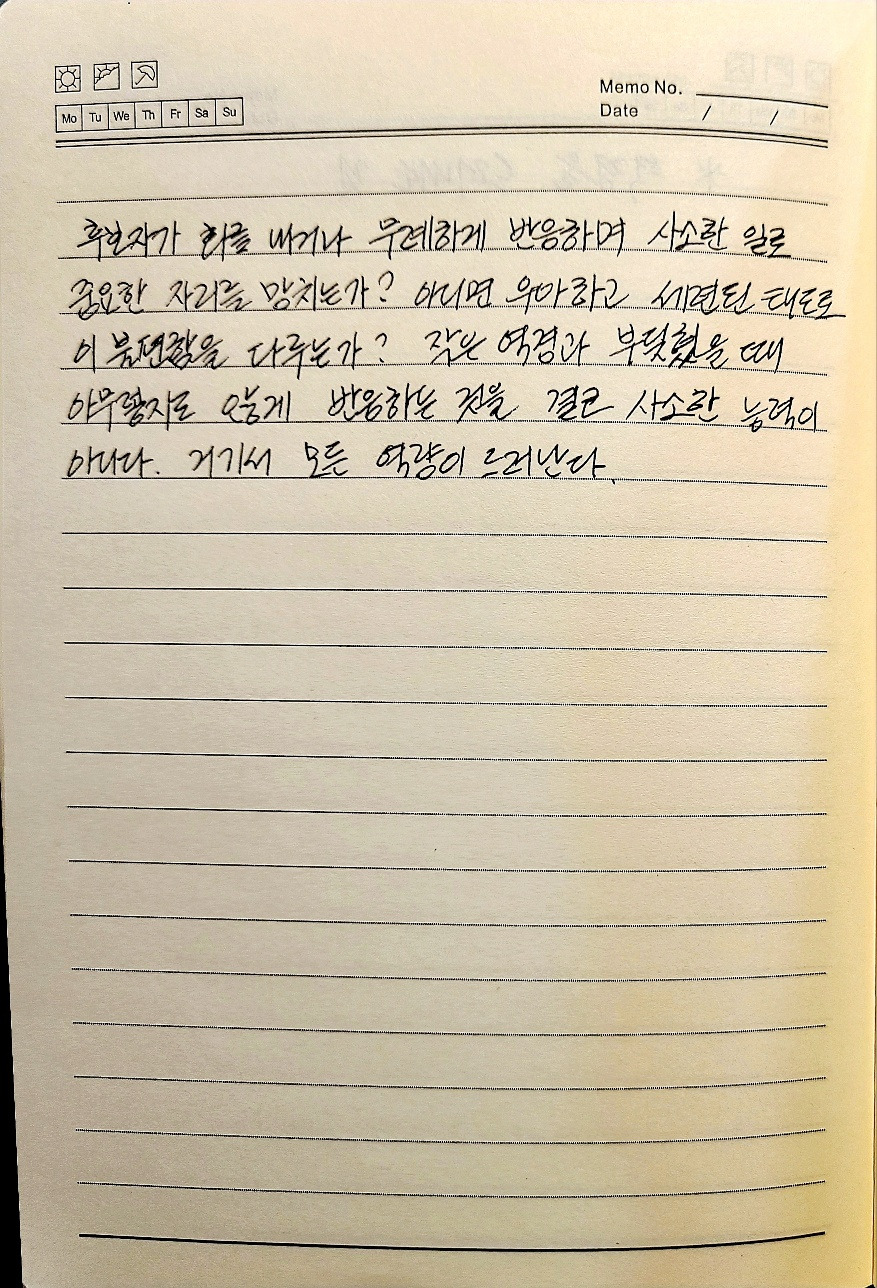 Memo No.
Mo Tu We Th Fr Sa Su
Date / /
후보자가 화를 내거나 무례하게 반응하며 사소한 일로
중요한 자리를 망치는가? 아니면 우아하고 세련된 태도로
이 불편함을 다루는가? 작은 역경과 부딪혔을 때
아무렇지도 않게 반응하는 것은 결코 사소한 능력이
아니다. 거기서 모든 역량이 드러난다.